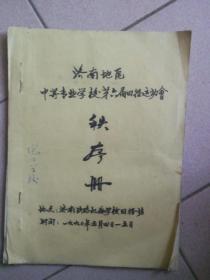 济南地区
中等专业学校第六届田径运动会
秩
序
册
地点:济南铁路机械学校田径场
时间:一九九〇年五月四日—五日